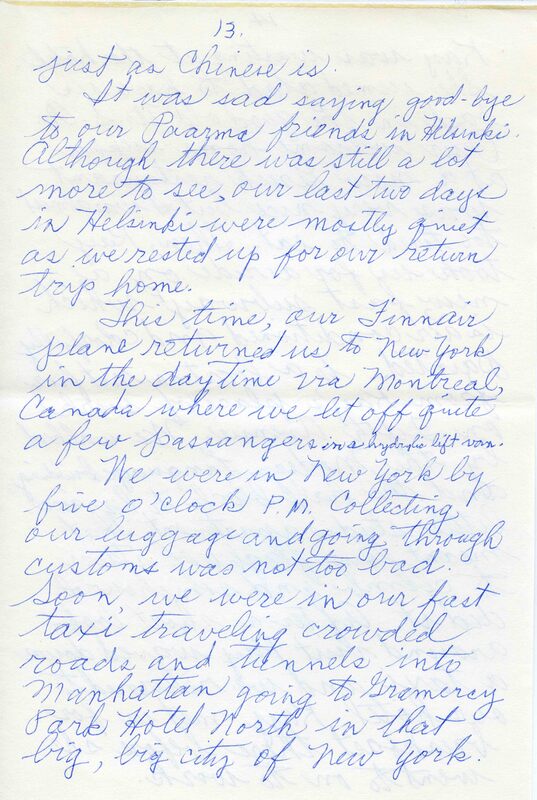 13.
just as Chinese is.
It was sad saying good-bye
to our Paarma friends in Helsinki.
Although there was still a lot
more to see, our last two days
in Helsinki were mostly quiet
as we rested up for our return
trip home.
This time, our Finnair
plane returned us to New York
in the daytime via Montreal,
Canada where we let off quite
a few passangers in a hydrolic lift van.
We were in New York by
five o'clock P.M. Collecting
our luggage and going through
customs was not too bad.
Soon, we were in our fast
taxi traveling crowded
roads and tunnels into
Manhattan going to Gramercy
Park Hotel North in that
big, big city of New York.